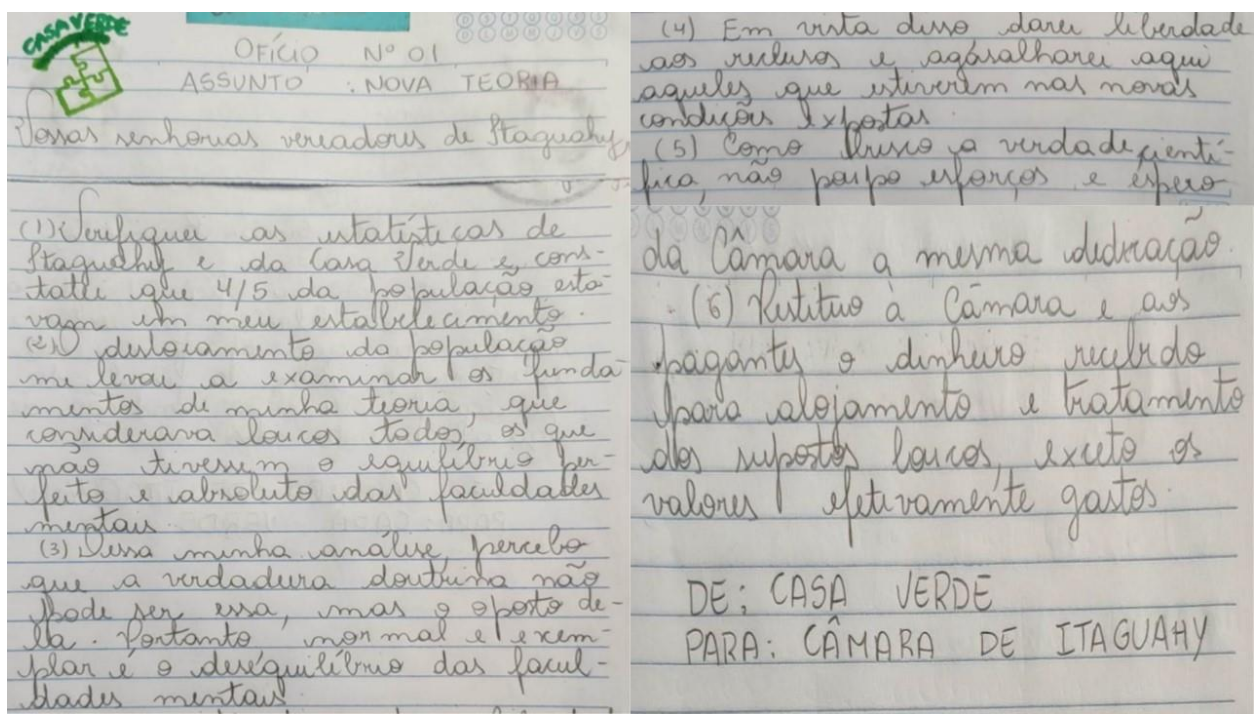 CASA VERDE
OFÍCIO Nº 01
ASSUNTO : NOVA TEORIA
Vossas senhorias vereadores de Itaguahy,
(1) Verifiquei as estatísticas de
Itaguahy e da Casa Verde e cons-
tatei que 4/5 da população esta-
vam em meu estabelecimento.
(2) O deslocamento da população
me levou a examinar os funda-
mentos de minha teoria, que
considerava loucos todos os que
não tivessem o equilíbrio per-
feito e absoluto das faculdades
mentais.
(3) Dessa minha análise, percebo
que a verdadeira doutrina não
pode ser essa, mas o oposto de-
la. Portanto, normal e exem-
plar é o desequilíbrio das facul-
dades mentais.
(4) Em vista disso darei liberdade
aos reclusos e agasalharei aqui
aqueles que estiverem nas novas
condições expostas.
(5) Como busco a verdade cientí-
fica, não poupo esforços e espero
da Câmara a mesma dedicação.
(6) Restituo à Câmara e aos
pagantes o dinheiro recebido
para alojamento e tratamento
dos supostos loucos, exceto os
valores efetivamente gastos.
DE: CASA VERDE
PARA: CÂMARA DE ITAGUAHY